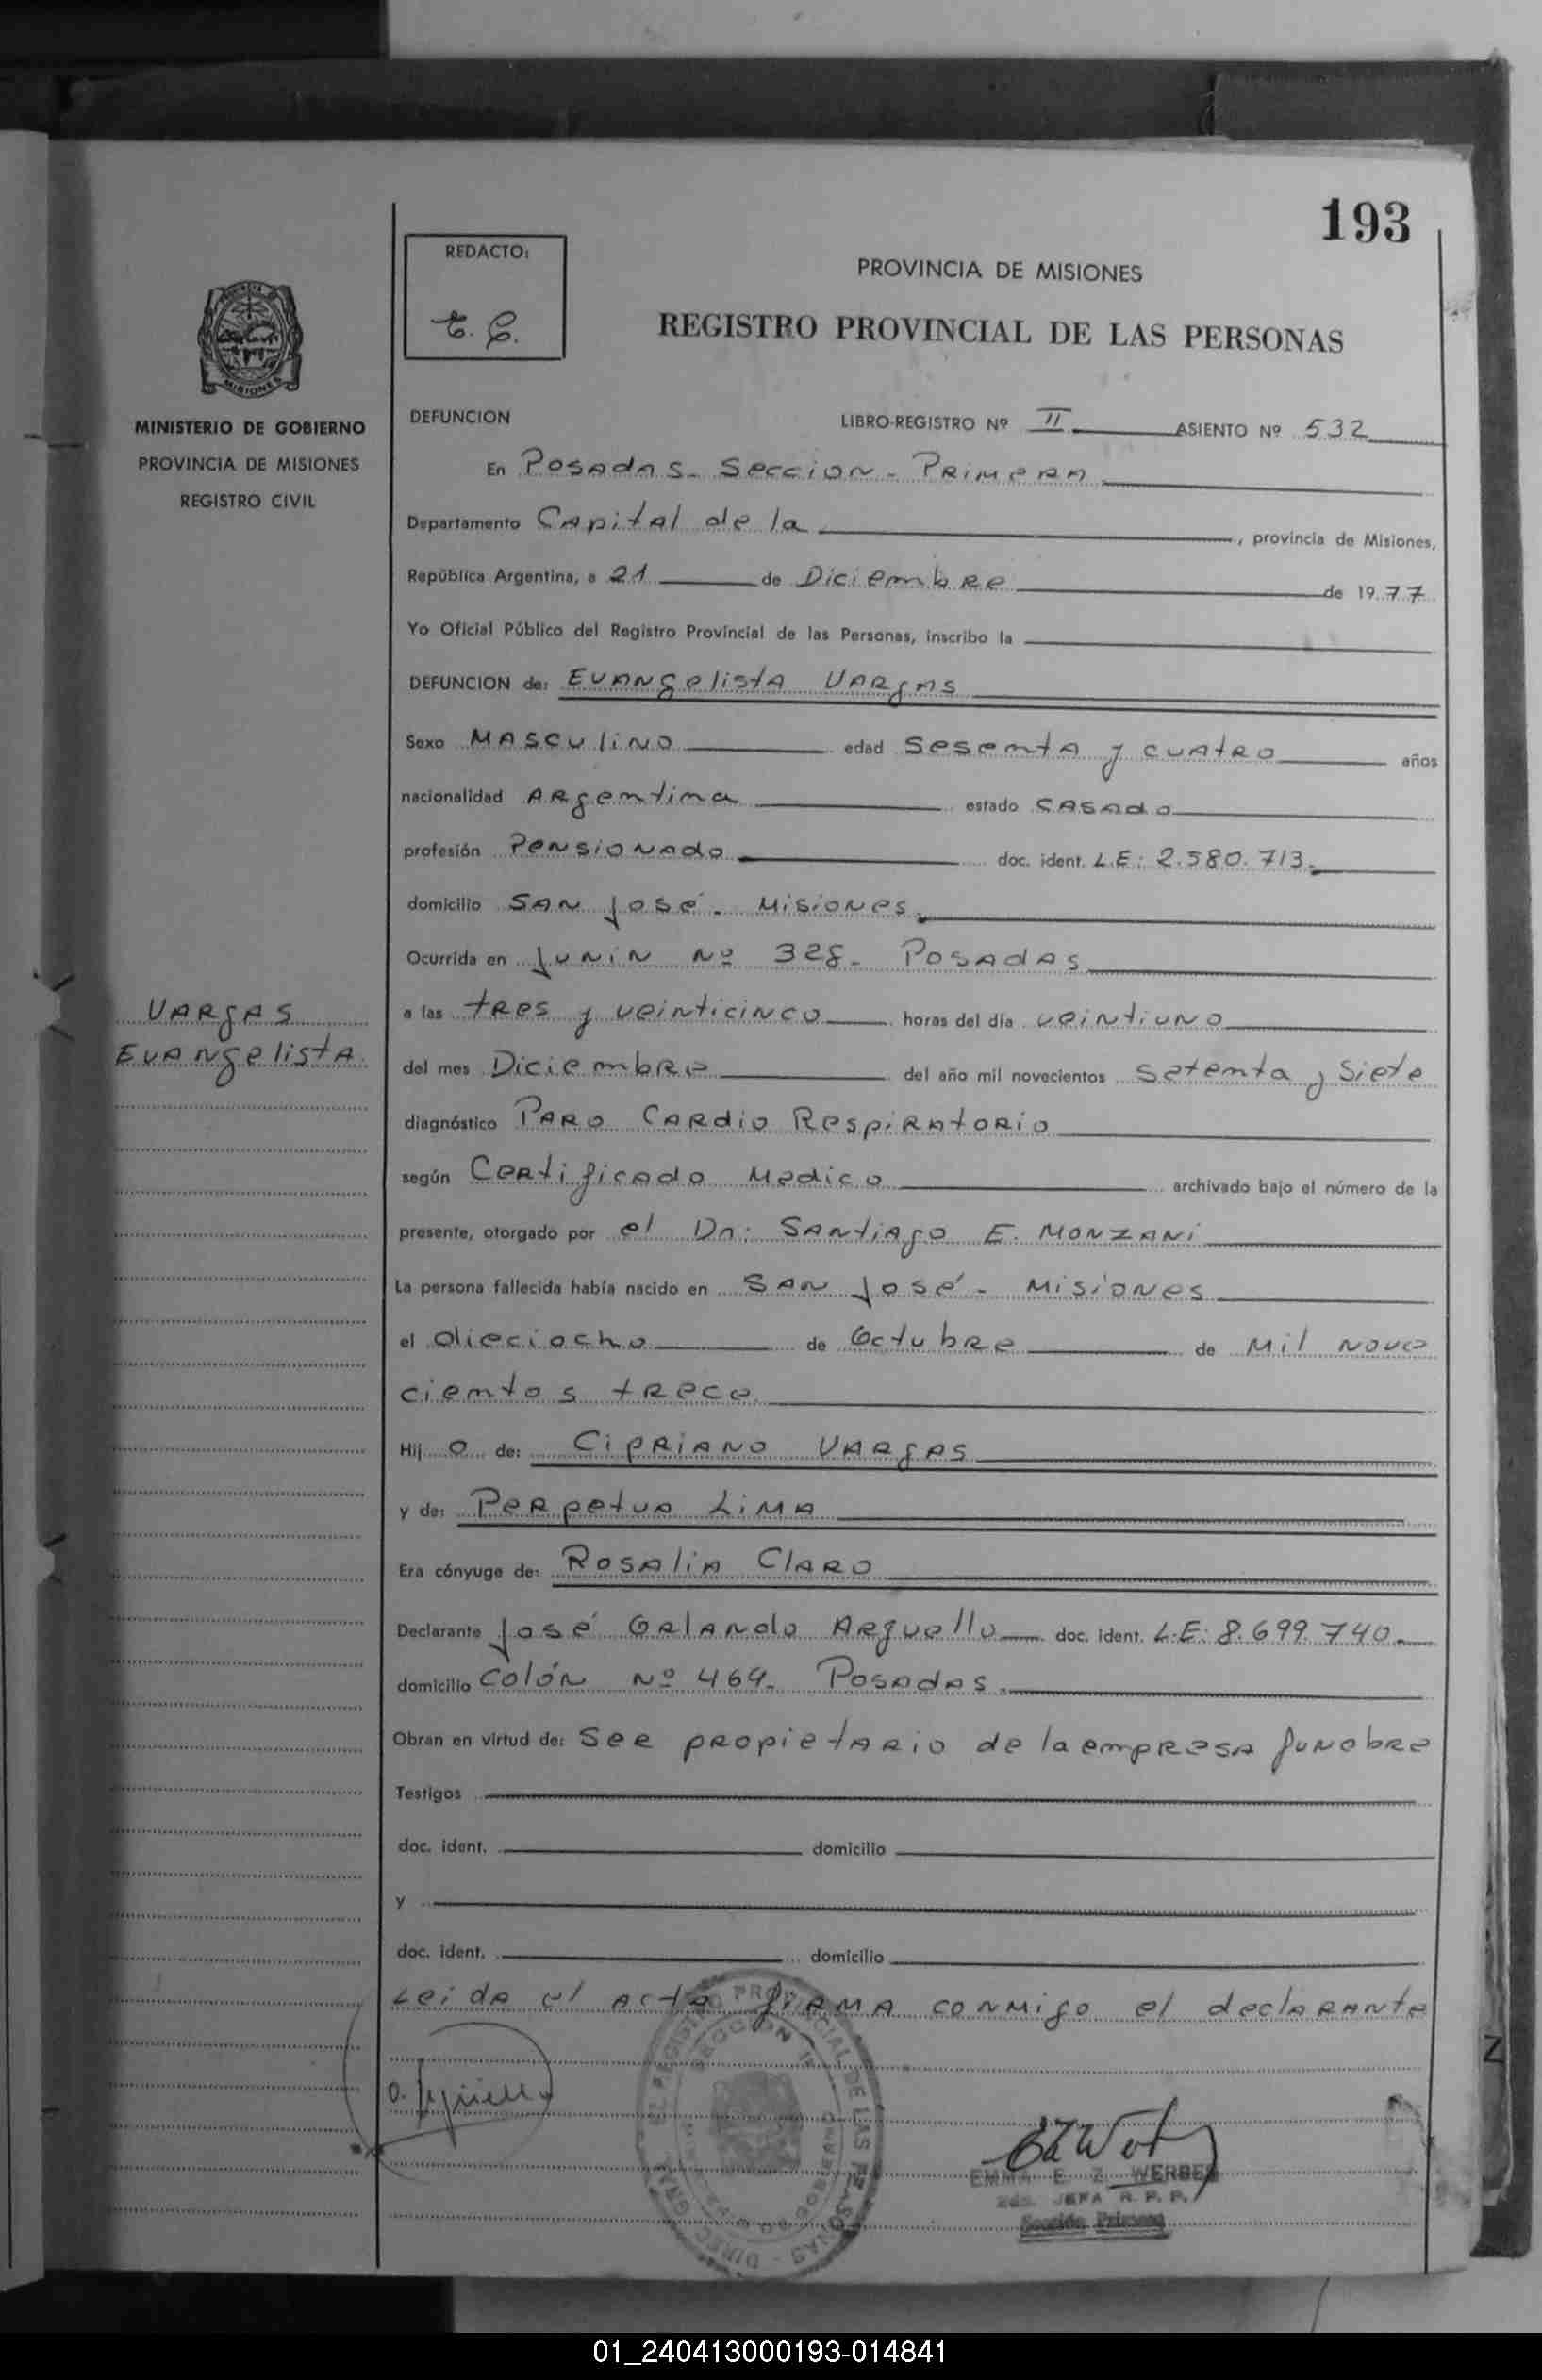 193
REDACTO:
PROVINCIA DE MISIONES
REGISTRO PROVINCIAL DE LAS PERSONAS
MISIONES
MINISTERIO DE GOBIERNO
PROVINCIA DE MISIONES
REGISTRO CIVIL
DEFUNCION LIBRO-REGISTRO Nº II ASIENTO Nº 532
En Posadas - Seccion - Primera
Departamento Capital de la , provincia de Misiones,
República Argentina, a 21 de Diciembre de 1977
Yo Oficial Público del Registro Provincial de las Personas, inscribo la
DEFUNCION de: Evangelista Vargas
Sexo Masculino edad sesenta y cuatro años
nacionalidad Argentina estado casado
profesión Pensionado doc. ident. L.E: 2.580.713.
domicilio San José - Misiones.
Ocurrida en Junin Nº 328 - Posadas
Vargas
Evangelista
a las tres y veinticinco horas del día veintiuno
del mes Diciembre del año mil novecientos setenta y siete
diagnóstico Paro Cardio Respiratorio
según Certificado Medico archivado bajo el número de la
presente, otorgado por el Dr: Santiago E. Monzani
La persona fallecida había nacido en San José - Misiones
el dieciocho de Octubre de mil nove
cientos trece.
Hij o de: Cipriano Vargas
y de: Perpetua Lima
Era cónyuge de: Rosalia Claro
Declarante José Orlando Arguello doc. ident. L.E: 8.699.740.
domicilio Colón Nº 464. Posadas.
Obran en virtud de: ser propietario de la empresa funebre
Testigos
doc. ident. domicilio
y
doc. ident. domicilio
Leida el acta firma conmigo el declarante
EMMA E. Z. WERBES
JEFA R. P. P.
Sección Primera
01_240413000193-014841